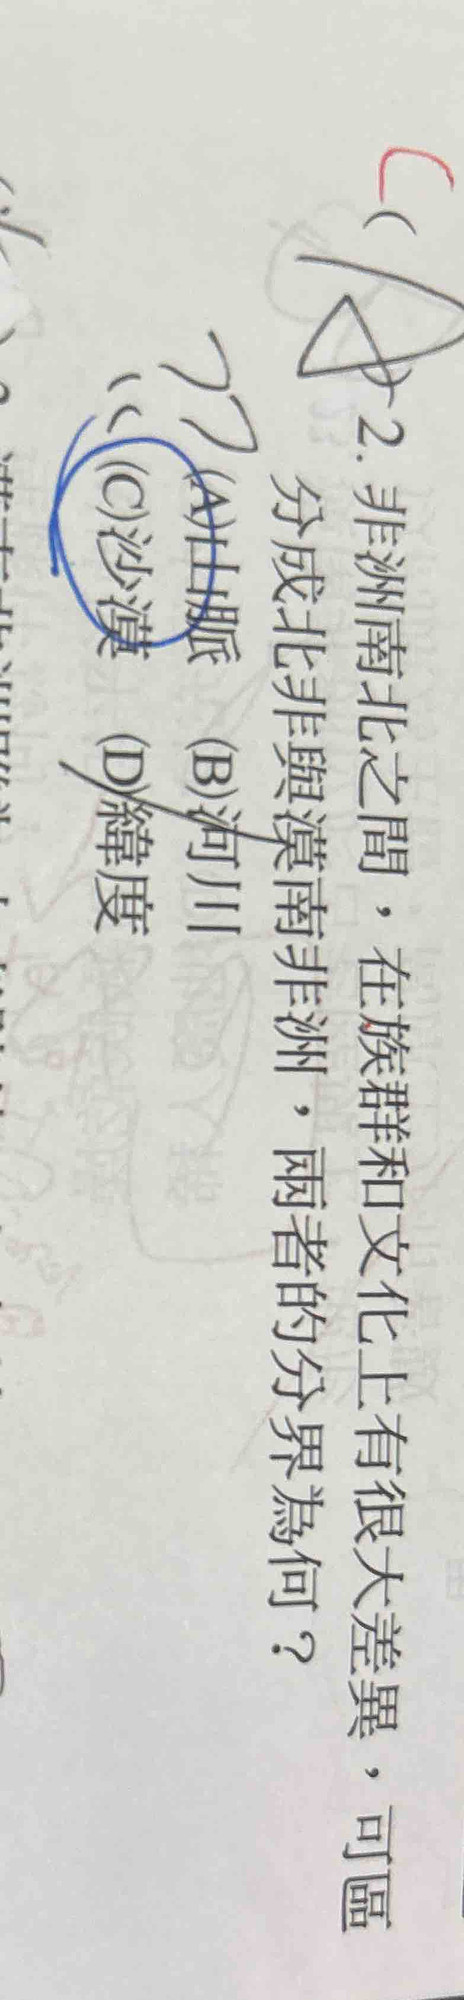 C
( A ) 2. 非洲南北之間，在族群和文化上有很大差異，可區
分成北非與漠南非洲，兩者的分界為何？
?? (A)山脈 (B)河川
(C)沙漠 (D)緯度